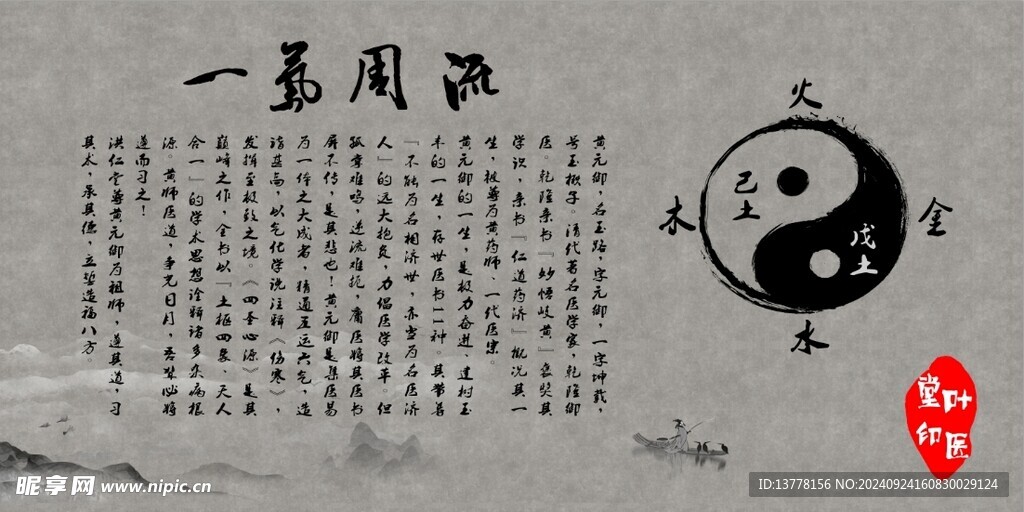 一氣周流
黄元御，名玉路，字元御，一字坤载，
号玉楸子。清代著名医学家，乾隆御
医。乾隆亲书『妙悟岐黄』褒奖其
学识，亲书『仁道药济』概况其一
生，被尊为黄药师、一代医宗。
黄元御的一生，是极力奋进、建树至
丰的一生，存世医书一一种。其常善
『不能为名相济世，亦当为名医济
人』的远大抱负，力倡医学改革。但
孤掌难鸣，逆流难挽，庸医将其医书
屏不传，是其悲也！黄元御是集医易
为一体之大成者，精通五运六气，造
诣甚高，以气化学说注释《伤寒》，
发挥至极致之境。《四圣心源》是其
巅峰之作，全书以『土枢四象、天人
合一』的学术思想诠释诸多杂病根
源。黄师医道，争光日月，吾辈必将
遵而习之！
洪仁堂尊黄元御为祖师，遵其道，习
其术，承其德，立堂造福八方
火
木
己土
戊土
金
水
叶医堂印
昵享网 www.nipic.cn
ID:13778156 NO:20240924160830029124